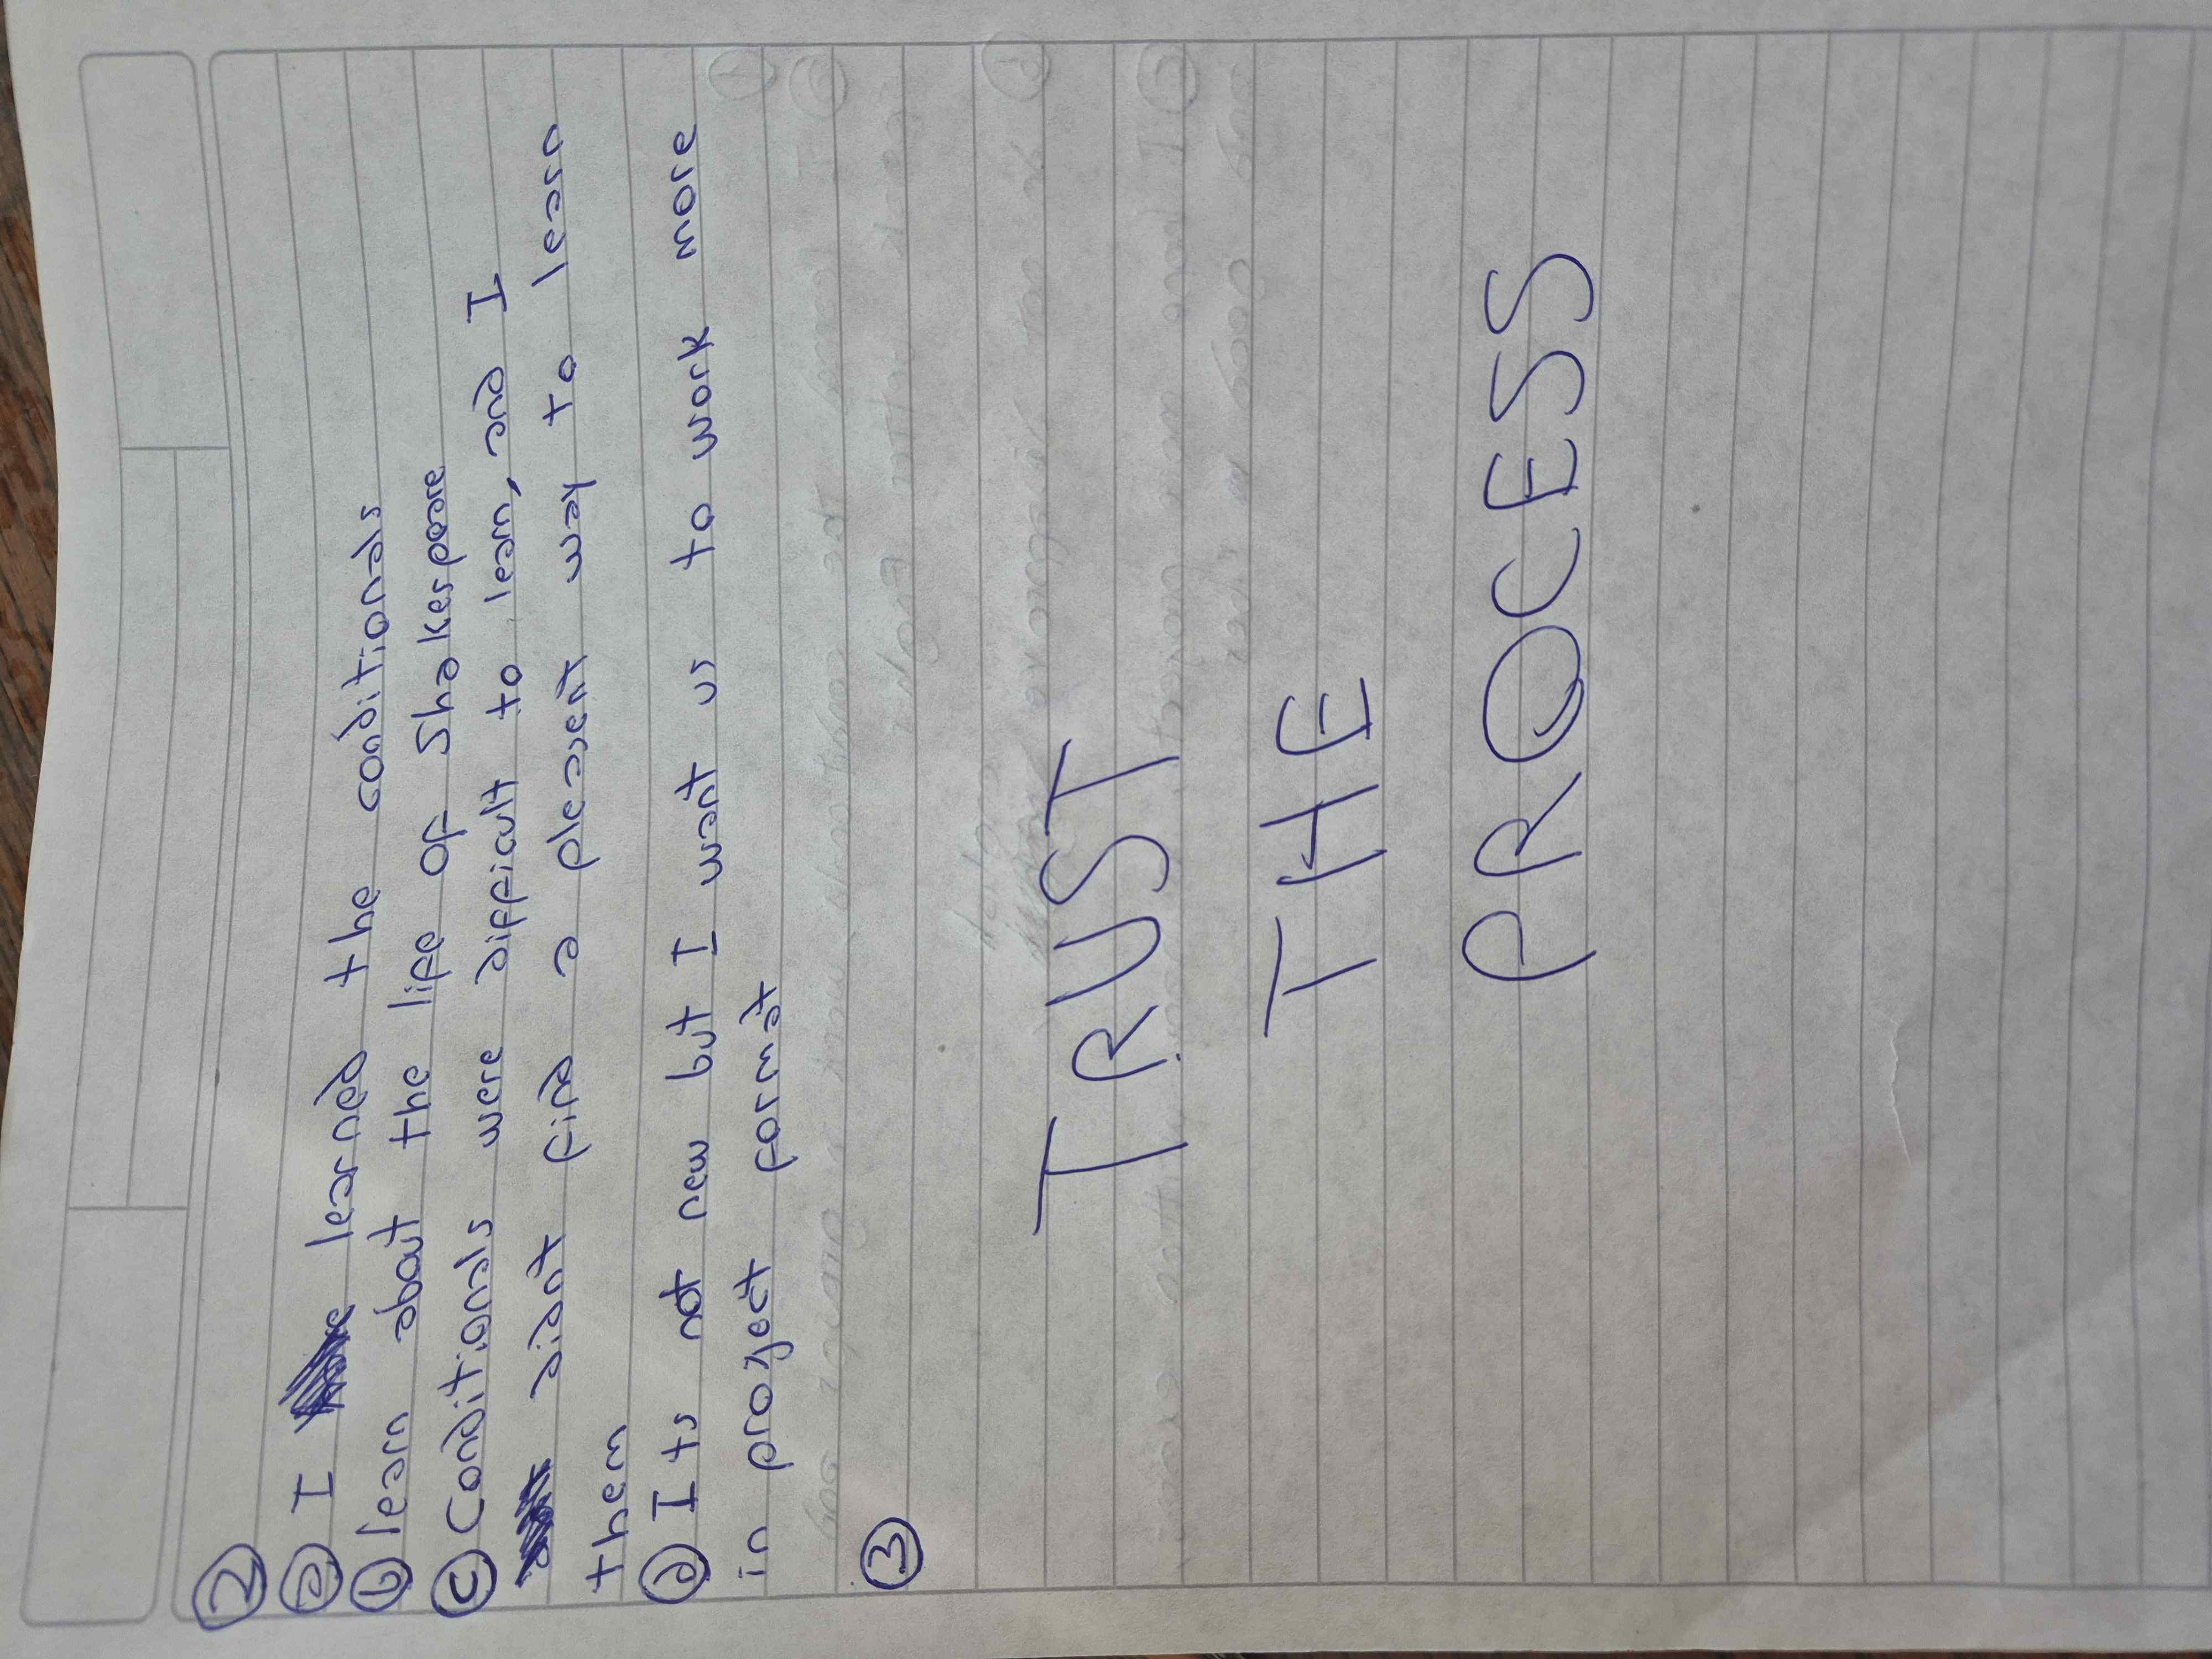 ②
ⓐ I learned the conditionals
ⓑ learn about the life of Shakespeare
ⓒ Conditionals were difficult to learn, and I
didnt find a plesent way to learn
them
ⓓ Its not new but I want us to work more
in project format
③
TRUST
THE
PROCESS